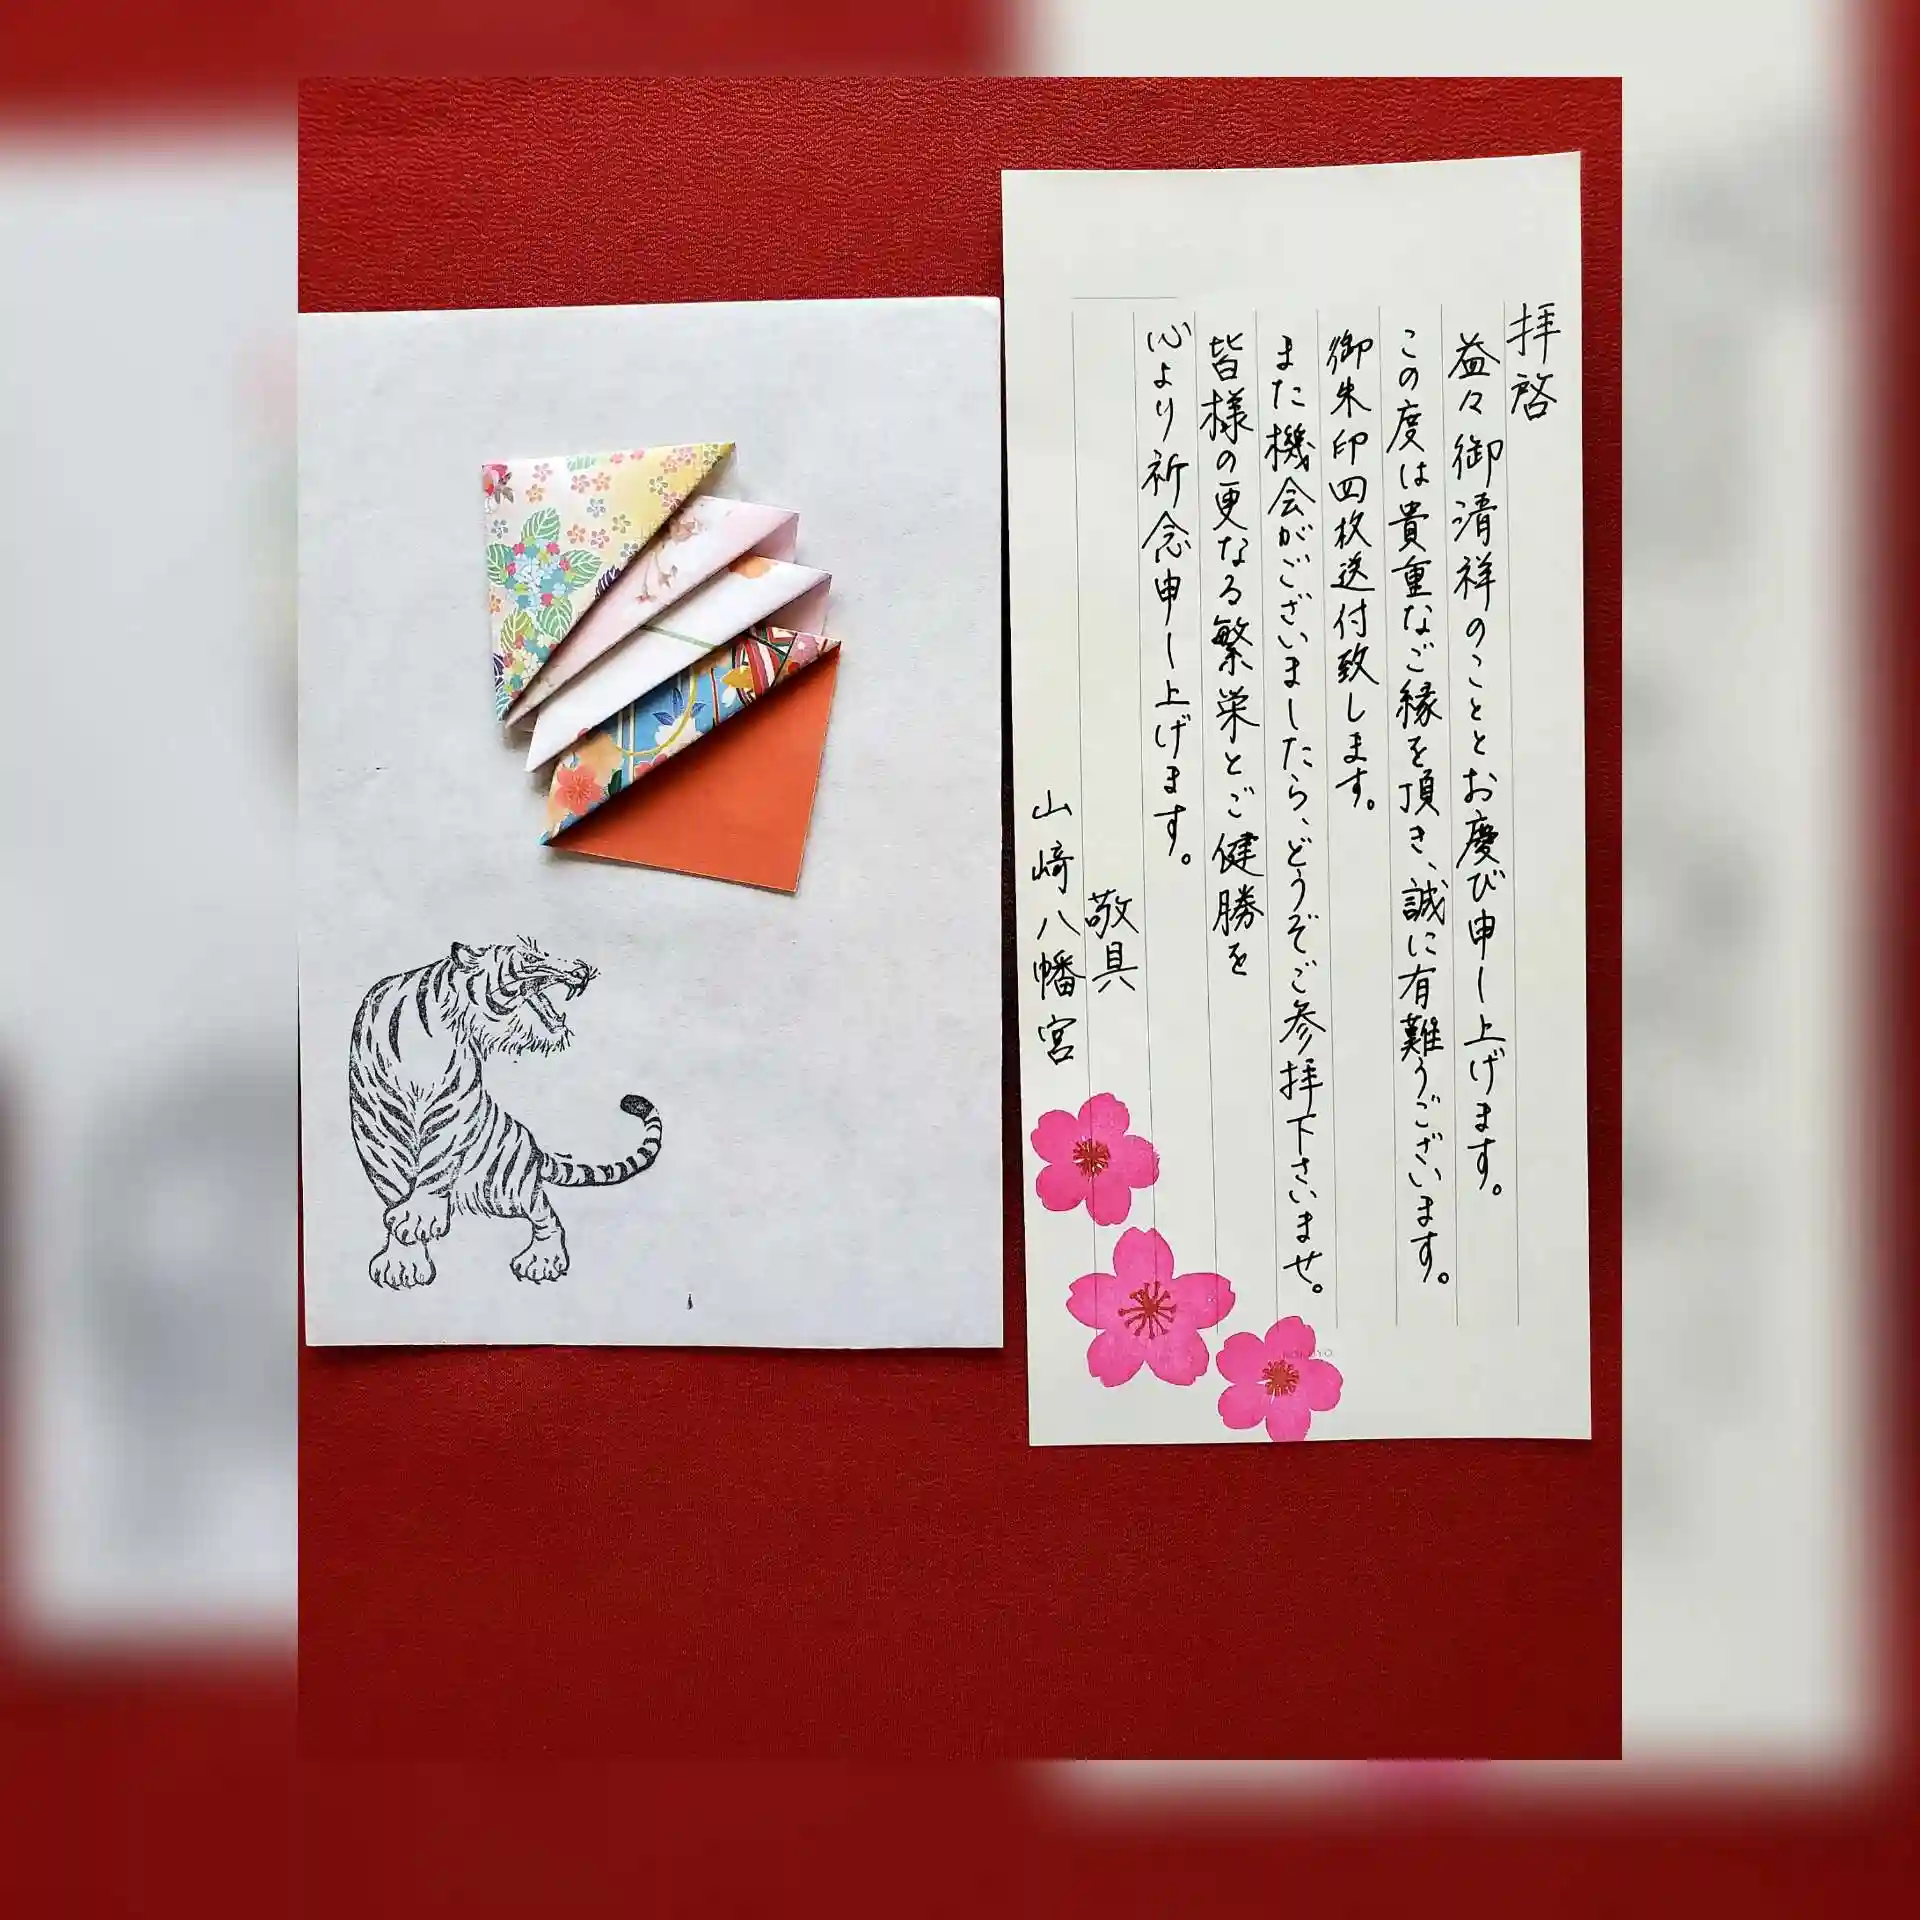 拝啓
益々御清祥のこととお慶び申し上げます。
この度は貴重なご縁を頂き、誠に有難うございます。
御朱印四枚送付致します。
また機会がございましたら、どうぞご参拝下さいませ。
皆様の更なる繁栄とご健勝を
心より祈念申し上げます。
敬具
山﨑八幡宮
KOKUYO